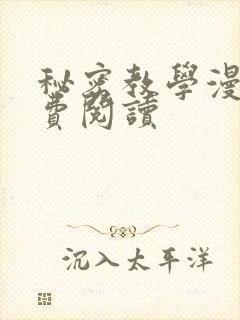 秘密教學漫
費閱讀
沉入太平洋